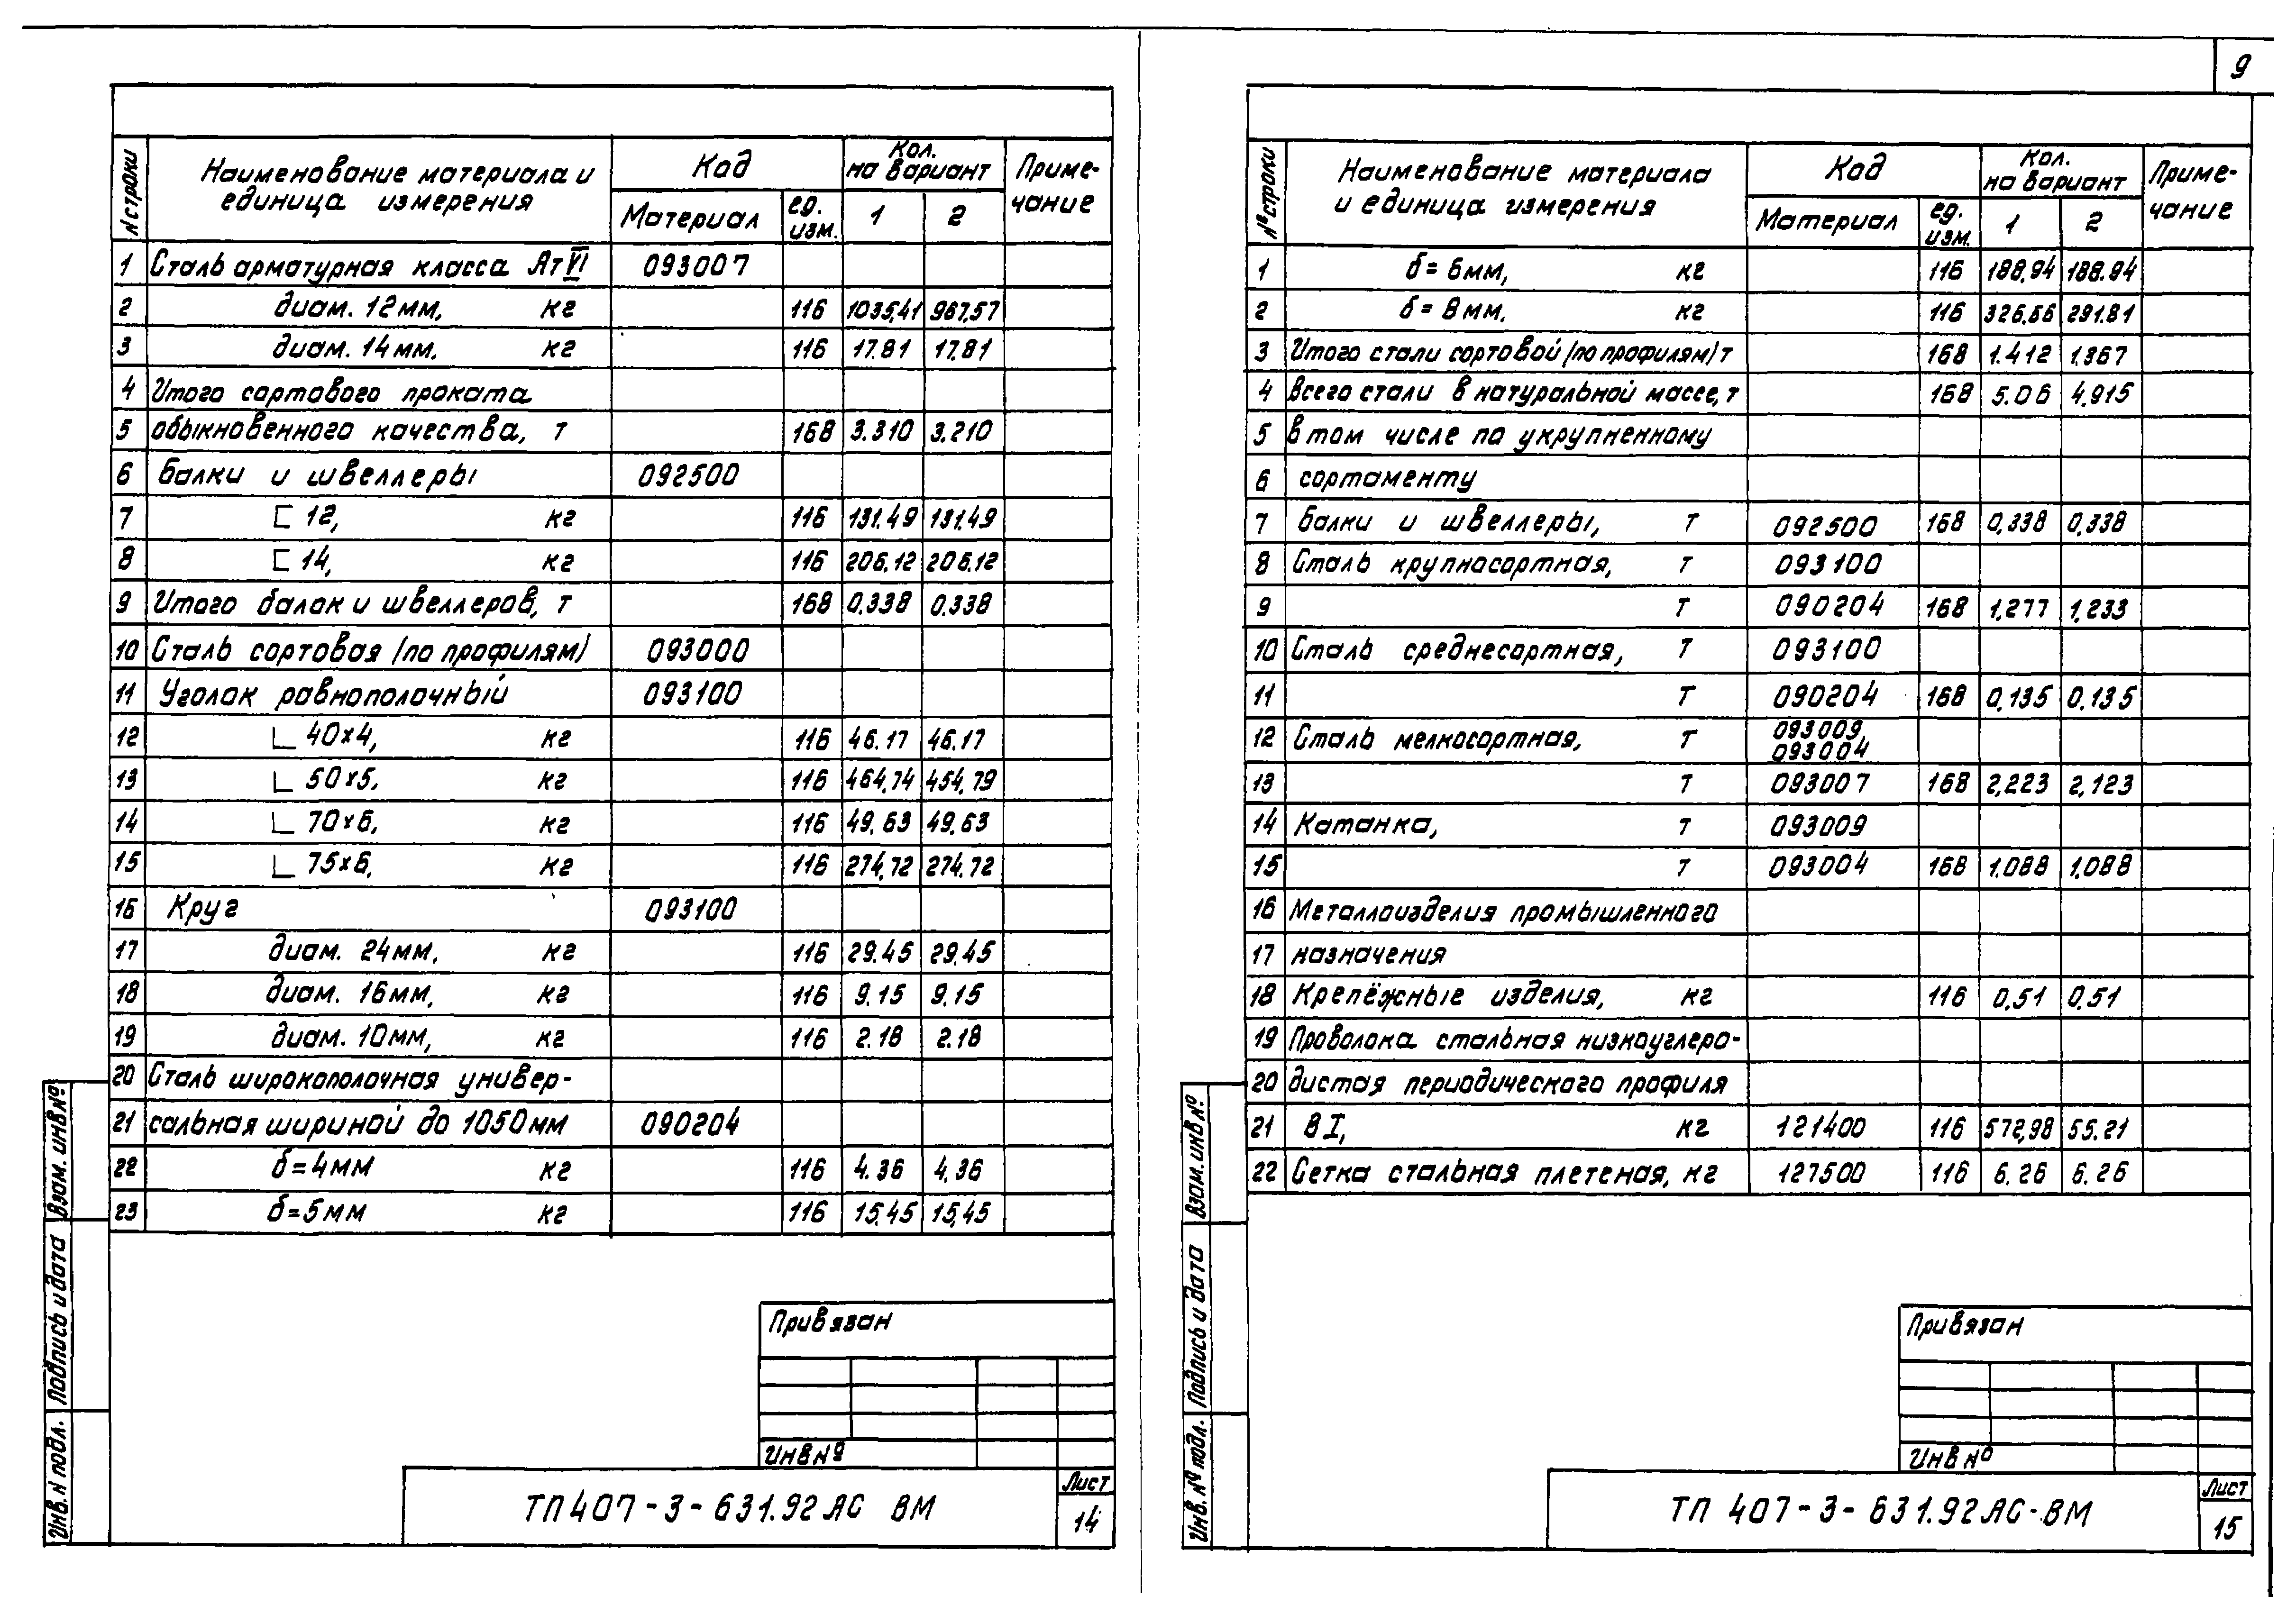 9
№ строки
Наименование материала и единица измерения
Код
Кол. на вариант
Примечание
Материал
ед. изм.
1
2
1 Сталь арматурная класса Ат VI 093007
2 диам. 12мм, кг 116 1035,41 967,57
3 диам. 14мм, кг 116 17.81 17.81
4 Итого сортового проката
5 обыкновенного качества, т 168 3.310 3.210
6 Балки и швеллеры 092500
7 [ 12, кг 116 131.49 131.49
8 [ 14, кг 116 206.12 206.12
9 Итого балок и швеллеров, т 168 0.338 0.338
10 Сталь сортовая (по профилям) 093000
11 Уголок равнополочный 093100
12 ∟ 40x4, кг 116 46.17 46.17
13 ∟ 50x5, кг 116 464,74 454,79
14 ∟ 70x6, кг 116 49.63 49.63
15 ∟ 75x6, кг 116 274,72 274.72
16 Круг 093100
17 диам. 24мм, кг 116 29.45 29.45
18 диам. 16мм, кг 116 9.15 9.15
19 диам. 10мм, кг 116 2.18 2.18
20 Сталь широкополочная универ-
21 сальная шириной до 1050мм 090204
22 б=4мм кг 116 4.36 4.36
23 б=5мм кг 116 15,45 15,45
Привязан
Инв №
ТП 407-3-631.92 АС ВМ
Лист
14
Взам. инв №
Подпись и дата
Инв. № подл.
№ строки
Наименование материала
и единица измерения
Код
Кол. на вариант
Примечание
Материал
ед. изм.
1
2
1 б= 6мм, кг 116 188,94 188.94
2 б= 8мм, кг 116 326.66 291.81
3 Итого стали сортовой (по профилям) т 168 1.412 1.367
4 Всего стали в натуральной массе, т 168 5.06 4.915
5 в том числе по укрупненному
6 сортаменту
7 Балки и швеллеры, т 092500 168 0,338 0,338
8 Сталь крупносортная, т 093100
9 т 090204 168 1,277 1,233
10 Сталь среднесортная, т 093100
11 т 090204 168 0,135 0.135
12 Сталь мелкосортная, т 093009, 093004
13 т 093007 168 2,223 2,123
14 Катанка, т 093009
15 т 093004 168 1.088 1,088
16 Металлоизделия промышленного
17 назначения
18 Крепёжные изделия, кг 116 0,51 0,51
19 Проволока стальная низкоуглеро-
20 дистая периодического профиля
21 В I, кг 121400 116 572,98 55.21
22 Сетка стальная плетеная, кг 127500 116 6.26 6.26
Привязан
Инв №
ТП 407-3-631.92 АС-ВМ
Лист
15
Взам. инв №
Подпись и дата
Инв. № подл.